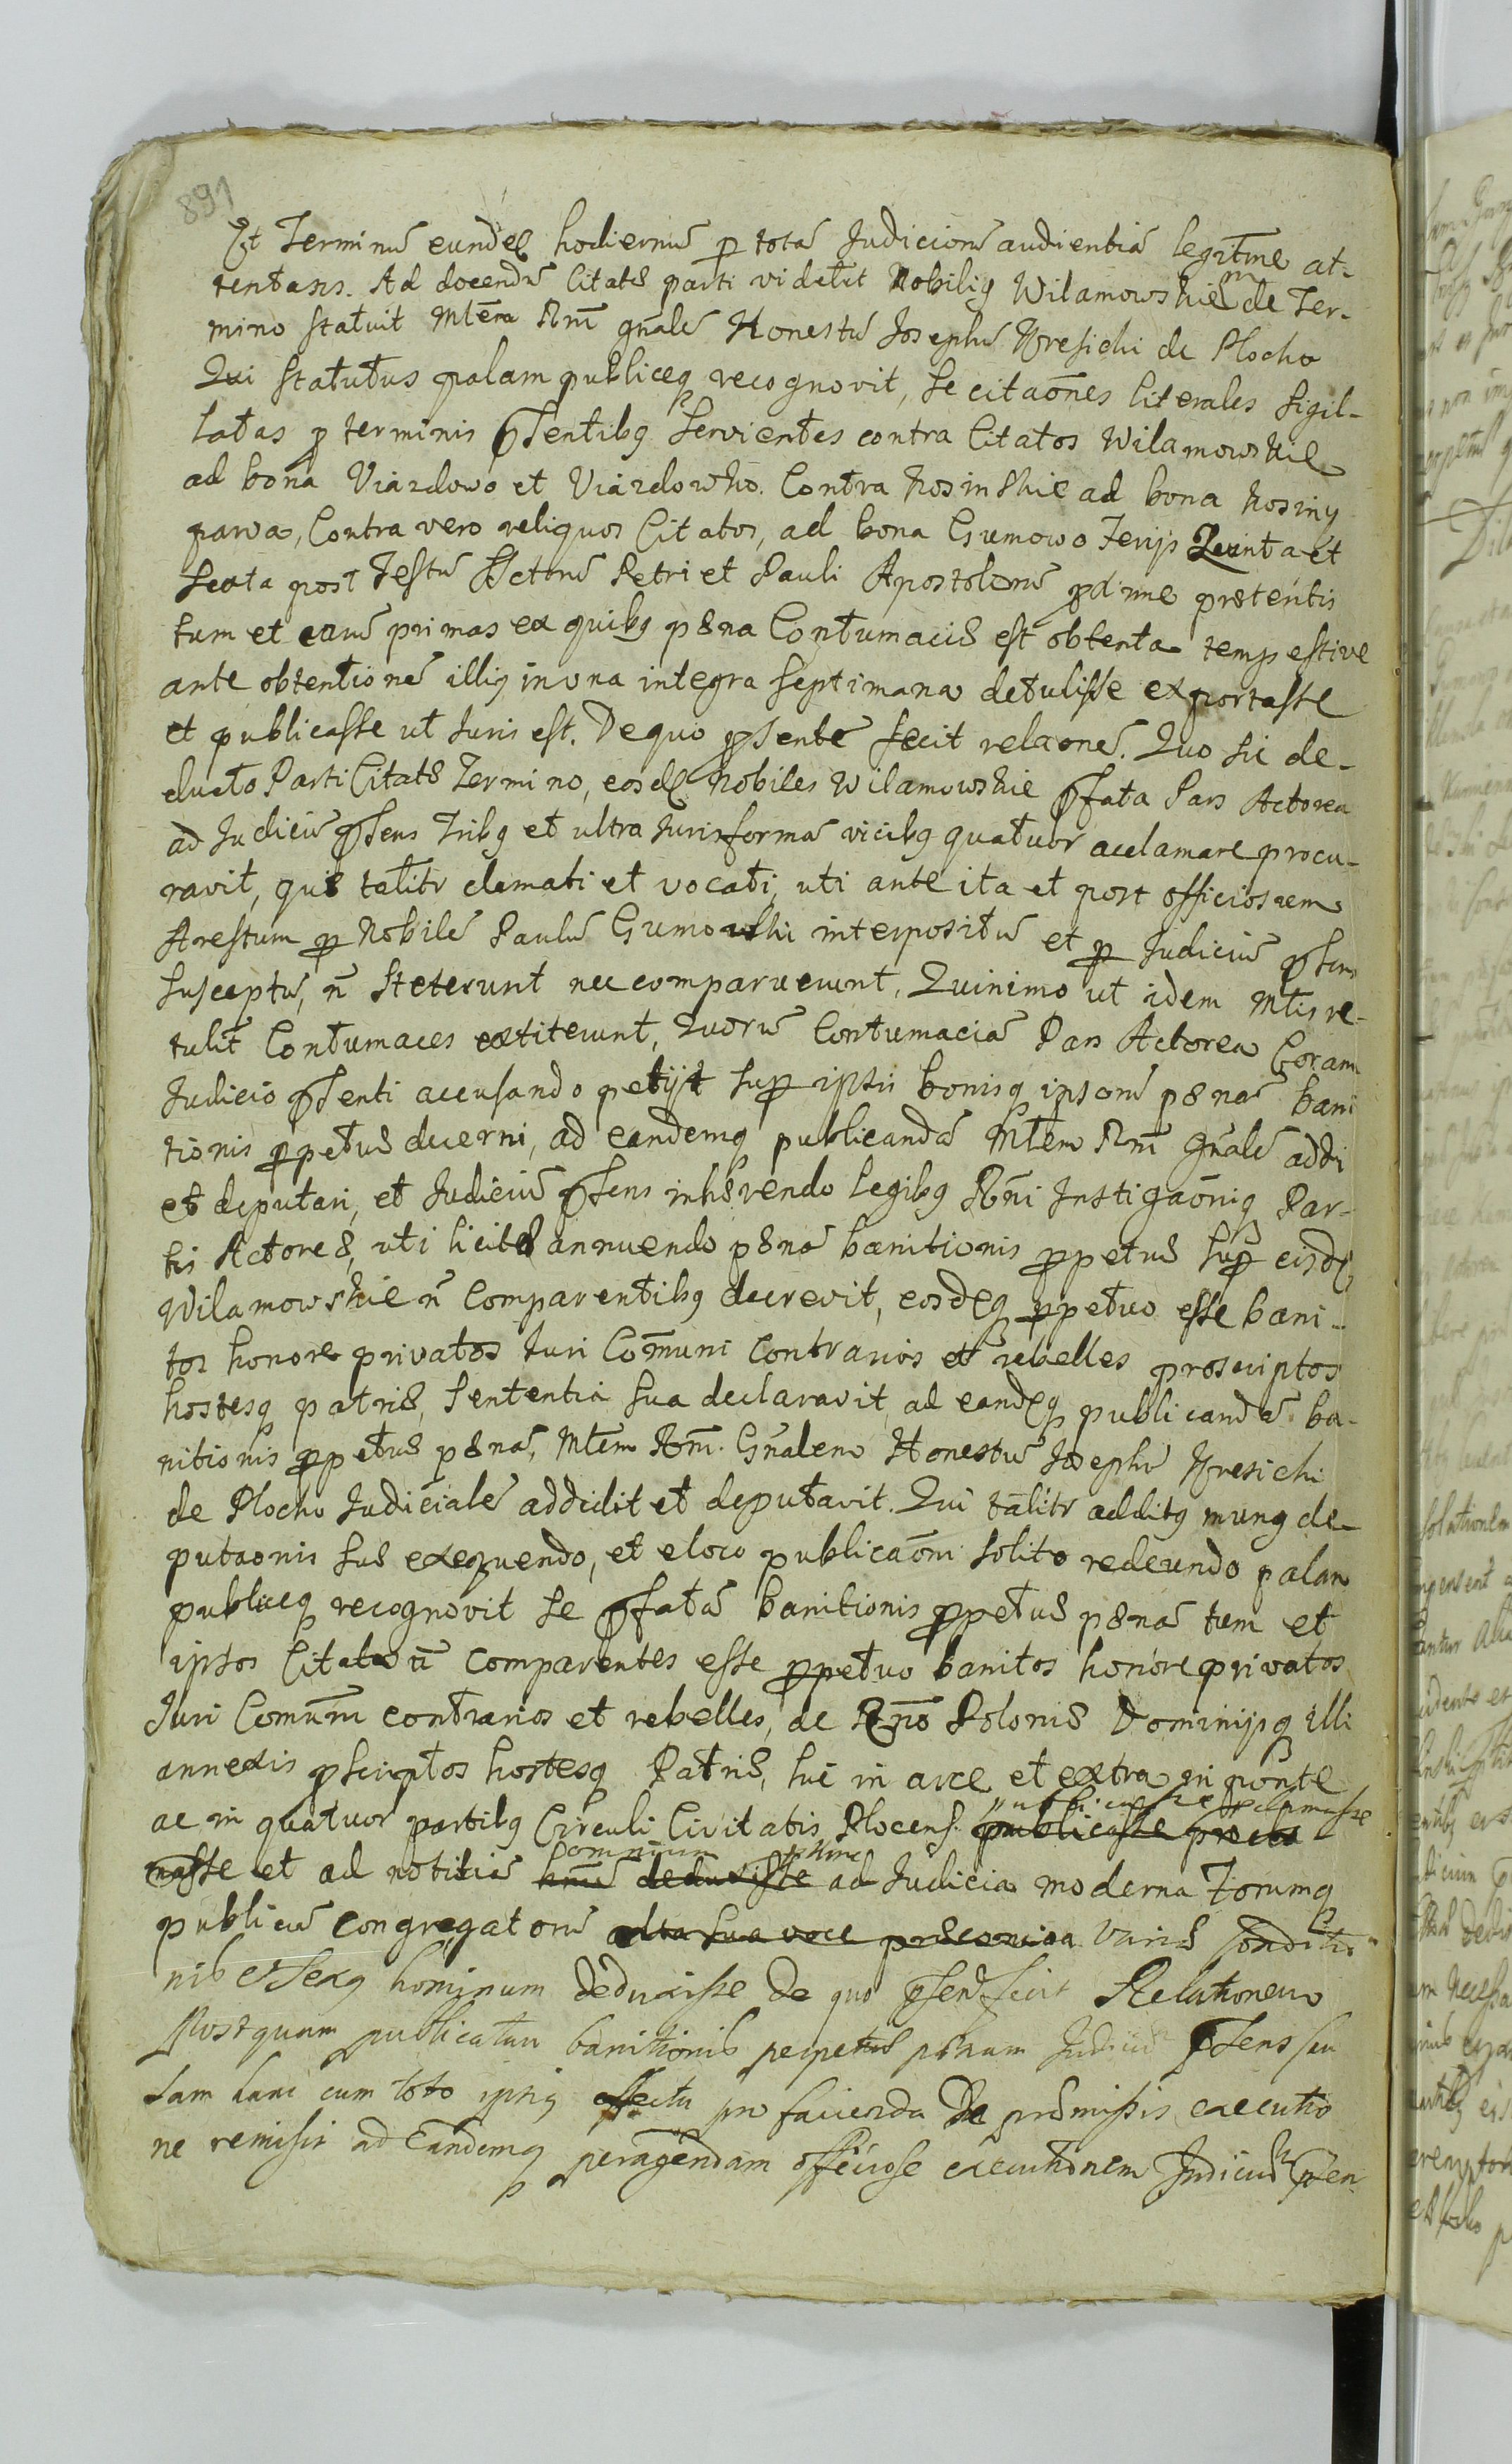 891
Et Terminũ eundẽ hodiernũ ꝑ totã Judiciorũ audientiã legitime at-
tentans. Ad docendũ Citatæ parti videlicet Nobiliq Wilamowskie de Ter-
mino statuit Mtẽm Rñi gñalẽ Honestũ Josephũ Kresicki de Plocko
Qui statutus palam publiceq recognovit, se citaões literales sigil-
latas ꝓ terminis pñsentibq servientes contra Citatos Wilamowskie
ad bona Viazdowo et Viazdowko. Contra Kosinskie ad bona Kosiny
parva, Contra vero reliquos Citatos, ad bona Gumowo Ferijs Quinta et
Sexta post Festũ Sctorũ Petri et Pauli Apostolorũ prox̃ime præteritis
tum et eaũ primas ex quibq pæna Contumaciæ est obtenta tempestive
ante obtentionẽ illiq in una integra septimana detulisse exportasse
et publicasse ut Juris est. De quo pñsentẽ fecit relaonẽ. Quo sic de-
ducto Parti Citatæ Termino, eosdẽ Nobiles Wilamowskie pñfata Pars Actorea
ad Judiciũ pñsens Tribq et ultra Juris formã vicibq quatuor acclamare procu-
ravit, qui taliter clamati et vocati, uti ante ita et post officiosum
Arestum ꝑ Nobilẽ Paulũ Gumowski interpositũ et ꝑ Judiciũ pñsens
susceptũ, ñ steterunt nec comparuerunt, Quinimo ut idem Mtis re-
tulit Contumaces extiterunt, Quorũ Contumaciã Pars Actorea Coram
Judicio pñsenti accusando petijt suꝑ ipsis bonisq ipsorũ pænã bani
tionis ꝑpetuæ decerni, ad eandemq publicandã Mtem Rñi Gñalẽ addi
et deputari, et Judiciũ pñsens inhærendo legibq Rñi Instigaõniq Par-
tis Actoreæ, uti licitæ annuendo pænã banitionis ꝑpetuæ suꝑ eisdẽ
Wilamowskie ñ Comparentibq decrevit, eosdẽq ꝑpetuo esse bani-
tos honore privatos Juri Com̃uni contrarios et rebelles proscriptos
hostesq patriæ, Sententia sua declaravit, ad eandẽq publicandã ba-
nitionis ꝑpetuæ pænã, Mtem Rñi. Gñalem Honestũ Josephũ Kresicki
de Plocko Judicialẽ addidit et deputavit. Qui taliter additq munq de-
putaonis suæ exequendo, et e loco publicaõni solito redeundo palam
publiceq recognovit se pñfatã banitionis ꝑpetuæ pænã tum et
ipsos Citatos ñ Comparentes esse ꝑpetuo banitos honore privatos
Juri Com̃uni contrarios et rebelles, de Rgño Poloniæ Dominijsq illi
annexis ꝓscriptos hostesq Patriæ, hic in arce et extra in ponte
ac in quatuor partibq Circuli Civitatis Plocens. publicasse procla
publicasse proclamasse
masse et ad notitiã hmũ deduxisse ad Judicia moderna Forumq
omnium
publicũ congregatorũ alta sua voce præconica variæ conditio
nis et Sexq hominum deduxisse De quo pñsent fecit Relationem
Postquam publicatam banitionis perpetuæ pænam Judiciũ pñsens cau
sam hanc cum toto ipsiq effectu pro facienda De præmissis executio
ne remisit ad Eandemq peragendam officiose executionem Judiciũ pñsen